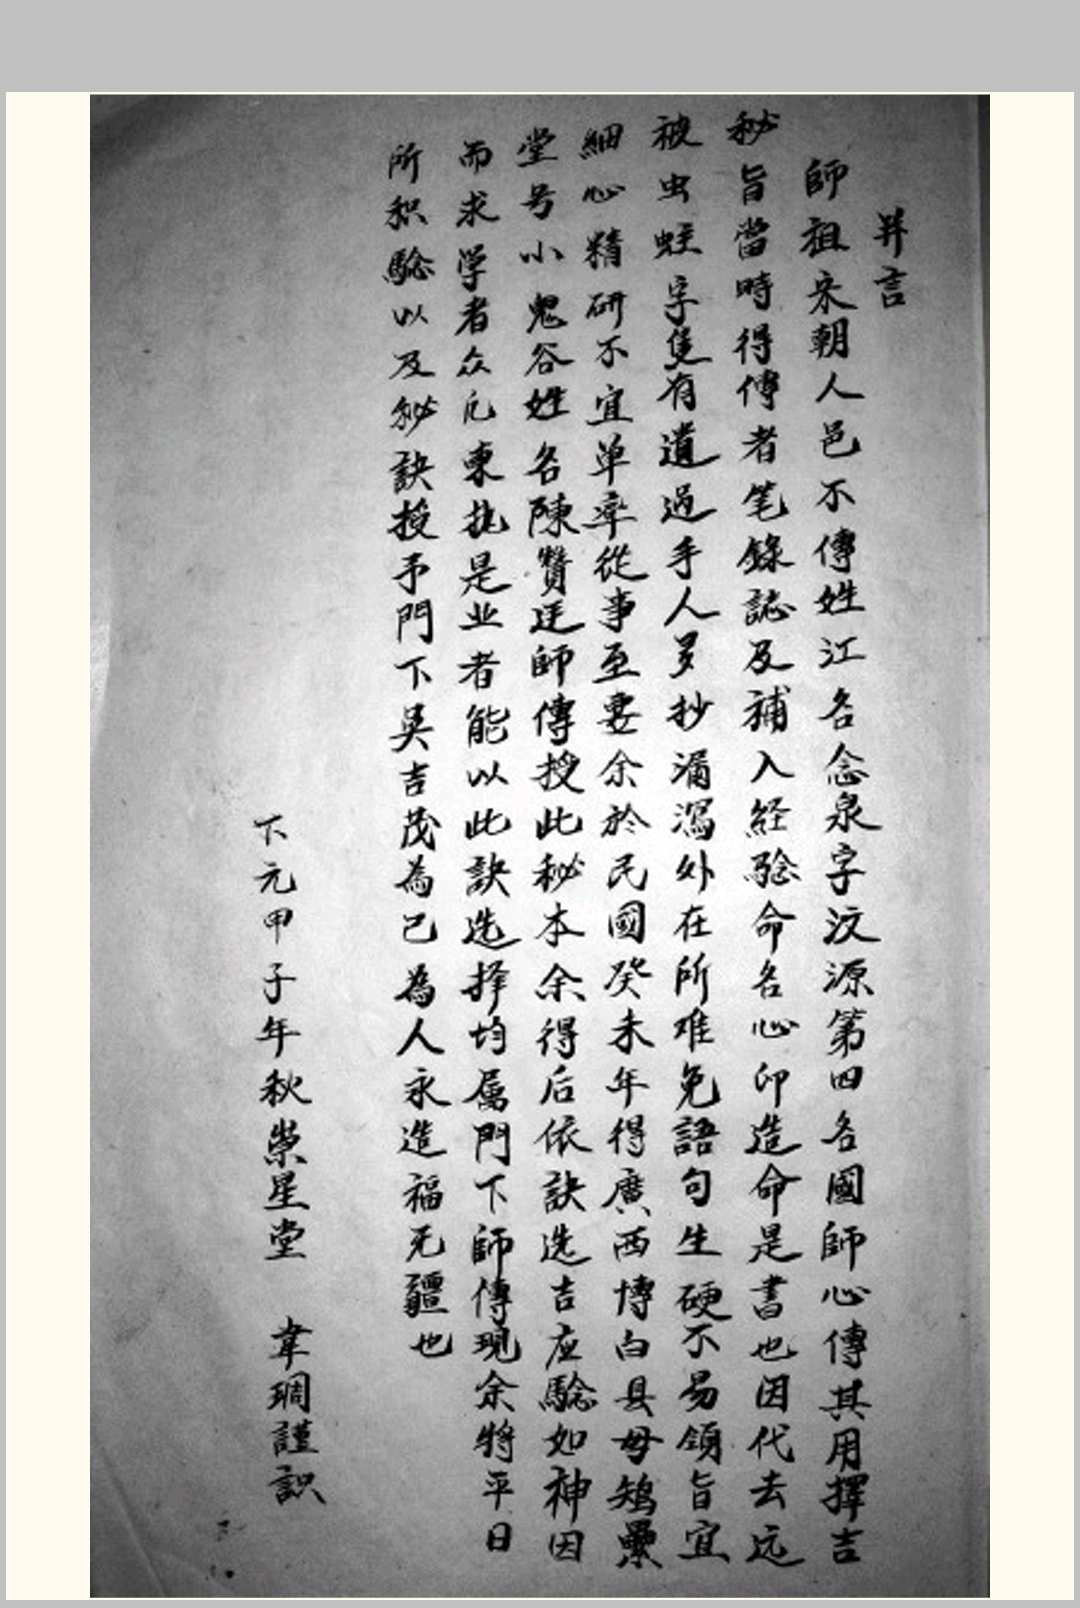 并言
師祖宋朝人邑不傳姓江名念泉字汶源第四名國師心傳其用擇吉
秘旨當時得傳者笔錄誌及補入経騐命名心印造命是書也因代去远
被虫蛀字隻有遺过手人多抄漏瀉外在所难免語句生硬不易領旨宜
細心精研不宜单率從事至要余於民國癸未年得廣西博白县母鸡
堂号小鬼谷姓名陳贊廷師傳授此秘本余得后依訣选吉应騐如神因
而求学者众凡東执是业者能以此訣选择均属門下師傳現余將平日
所积騐以及秘訣授予門下吳吉茂為己為人永造福无疆也
下元甲子年秋崇星堂 韋琱謹识